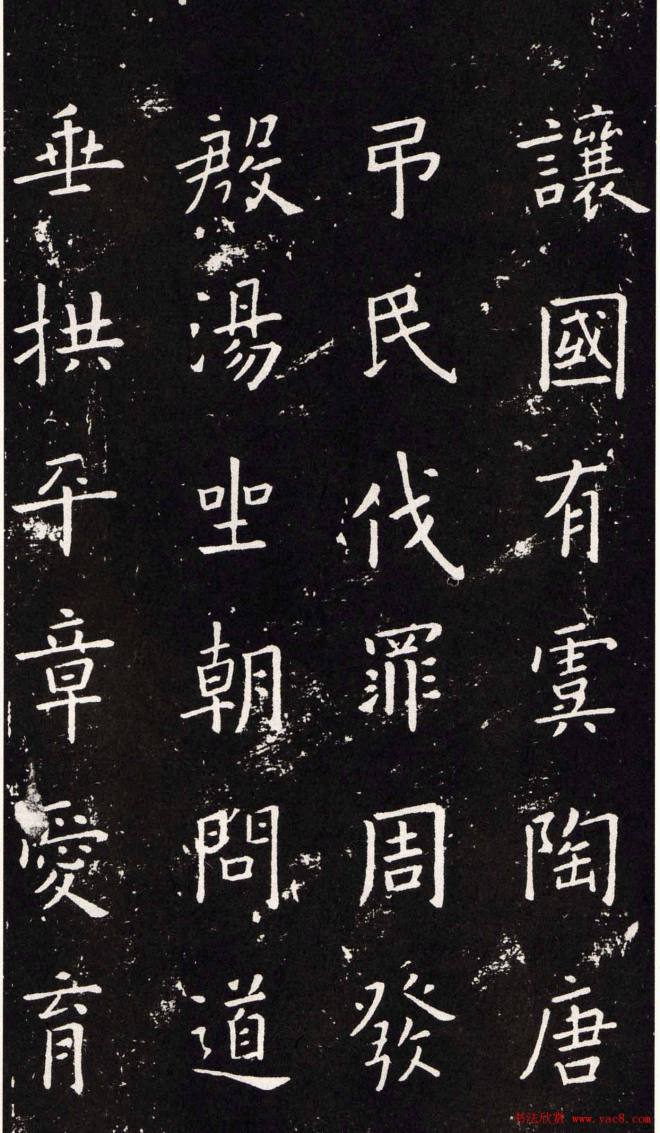 讓國有虞陶唐
弔民伐罪周發
殷湯坐朝問道
垂拱平章愛育
书法欣赏 www.yac8.com